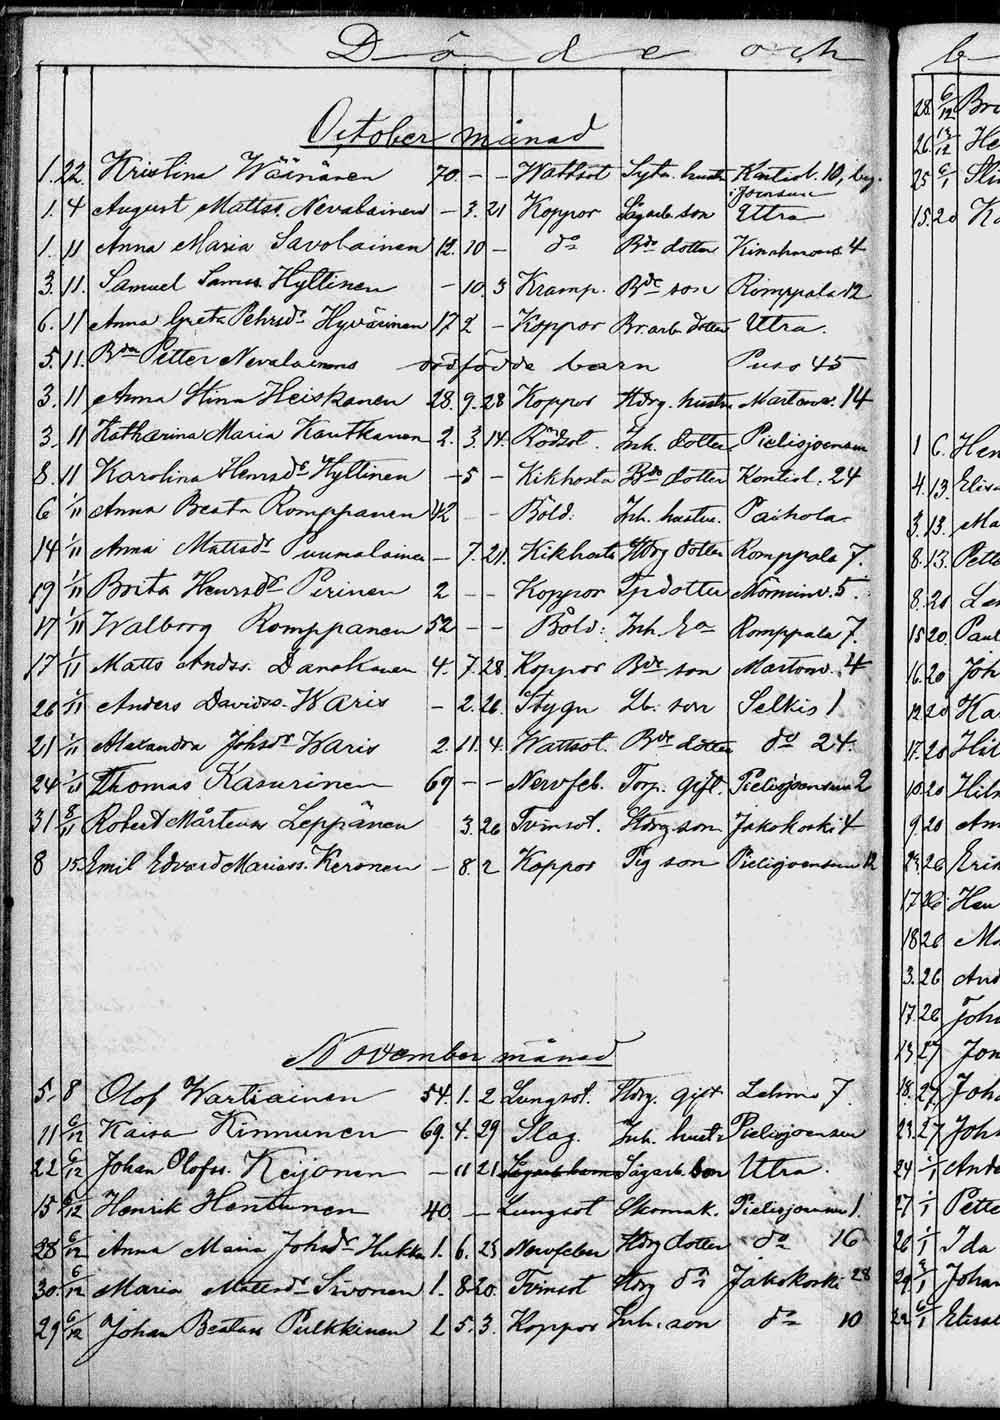 Döde och
October månad
1. 22. Kristina Wäänänen 70. - - Wattsot Sytn. hustru Kontiol. 10, bug.
1. 4 August Mattss. Nevalainen - 3. 21 Koppor Sågarb. son Utra
1. 11 Anna Maria Savolainen 12. 10 - do Bde dotter 4
3. 11. Samuel Samss. Hyttinen - 10. 3 Kramp. Bde son Romppala 12
6. 11 Anna Greta Pehrsdr Hyvärinen 17 2 - Koppor Br. arb. dotter Utra.
5. 11. Bdn Petter Nevalainens dödfödda barn Puso 45
3. 11 Anna Stina Heiskanen 28. 9. 28 Koppor Hdrg. hustru Martonv. 14
3. 11 Katharina Maria Kautkanen 2. 3. 14. Rödsot. Inh. dotter Pielisjoensuu
8. 11 Karolina Henrsdr Hyttinen - 5 - Kikhosta Bde dotter Kontiol. 24
6 1/11 Anna Beata Romppanen 42 - - Böld. Inh. hustru. Paihola
14 1/11 Anna Mattsdr Puumalainen - 7. 21. Kikhosta Hdrg dotter Romppala 7.
19 1/11 Brita Henrsdr Pirinen 2 - - Koppor Tp dotter 5.
17 1/11 Walborg Romppanen 52 - - Böld: Inh. Ea Romppala 7.
17 1/11 Matts Andss. Danskanen 4. 7. 28. Koppor Bde son Martonv. 4
26 1/11 Anders Davidss. Waris - 2. 26. Stygn Lb. son Selkis 1
21 1/11 Alexandra Johsdr Waris 2. 11. 4. Wattsot. Bde dotter do 24.
24 1/11 Thomas Kasurinen 69 - - Nervfeb. Torp. gift. Pielisjoensuu 2
31 8/11 Robert Mårtenss Leppänen 3. 26 Tvinsot. Hdrg son Jakokoski 4
8 15. Emil Edvard Mariass. Keronen - 8. 2 Koppor Pig son Pielisjoensuu 12
November månad
5. 8 Olof Wartiainen 54. 1. 2 Lungsot. Hdrg. gift Lehmo 7.
11 6/12 Kaisa Kinnunen 69. 4. 29 Slag. Inh. hustru Pielisjoensuu
22 6/12 Johan Olofss. Keijonen - 11 21 Sågarb. son Utra.
15 6/12 Henrik Hentunen 40. - Lungsot Skomak. Pielisjoensuu 1.
28 6/12 Anna Maria Johsdr Hukka 1. 6. 23 Nervfeber Hdrg dotter do 16
30. 6/12 Maria Mattsdr Sivonen 1. 8 20. Tvinsot Hdrg do Jakokoski 28
29 6/12 Johan Beatass Pulkkinen 1. 5. 3. Koppor Inh. son do 10
b
28. 6/12 Bri
26. 13/12 He
25 6/1 Sti
15. 20 Ka
1 6. Hen
4. 13. Elisa
3. 13. Ma
8. 13. Pette
8. 20
15 20. Paul
16. 20 Joh
12 20 Ka
17. 20 Hil
10. 20 Hilm
9. 20 Ann
23. 26 Erik
17 26. Hen
18 26 Ma
3. 26 And
17. 26 Joha
13. 27 Jon
18. 27. Joha
23. 27 Joha
24 1/1 Ande
27 1/1 Pette
26 1/1 Ida
29. 3/1 Johan
22 6/1